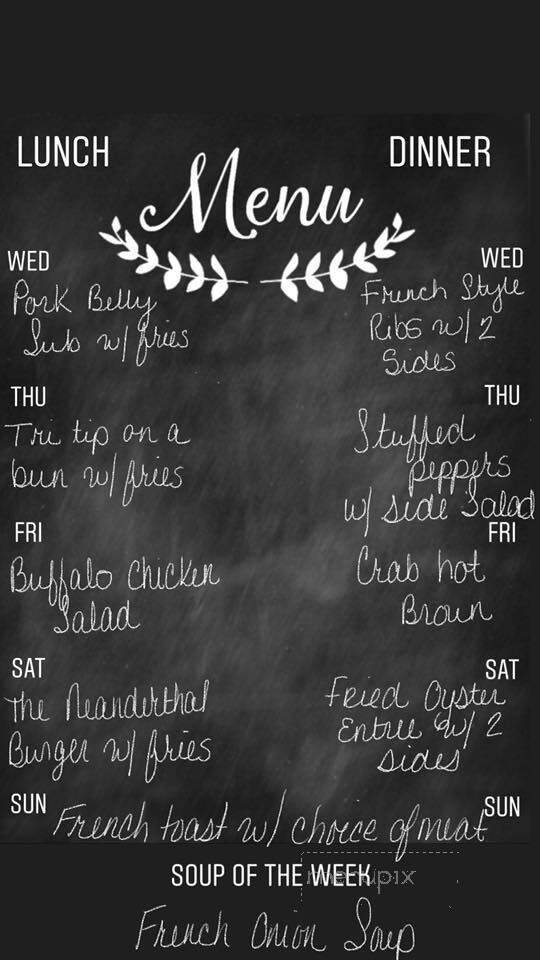 LUNCH
DINNER
Menu
WED
Pork Belly
Sub w/ fries
WED
French Style
Ribs w/ 2
Sides
THU
Tri tip on a
bun w/ fries
THU
Stuffed
peppers
w/ side Salad
FRI
Buffalo Chicken
Salad
FRI
Crab hot
Brown
SAT
The Neanderthal
Burger w/ fries
SAT
Fried Oyster
Entree w/ 2
sides
SUN
French toast w/ choice of meat
SUN
SOUP OF THE WEEK
menupix
French Onion Soup